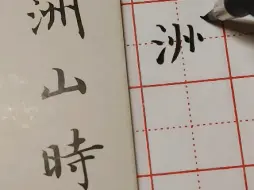 洲山時
洲